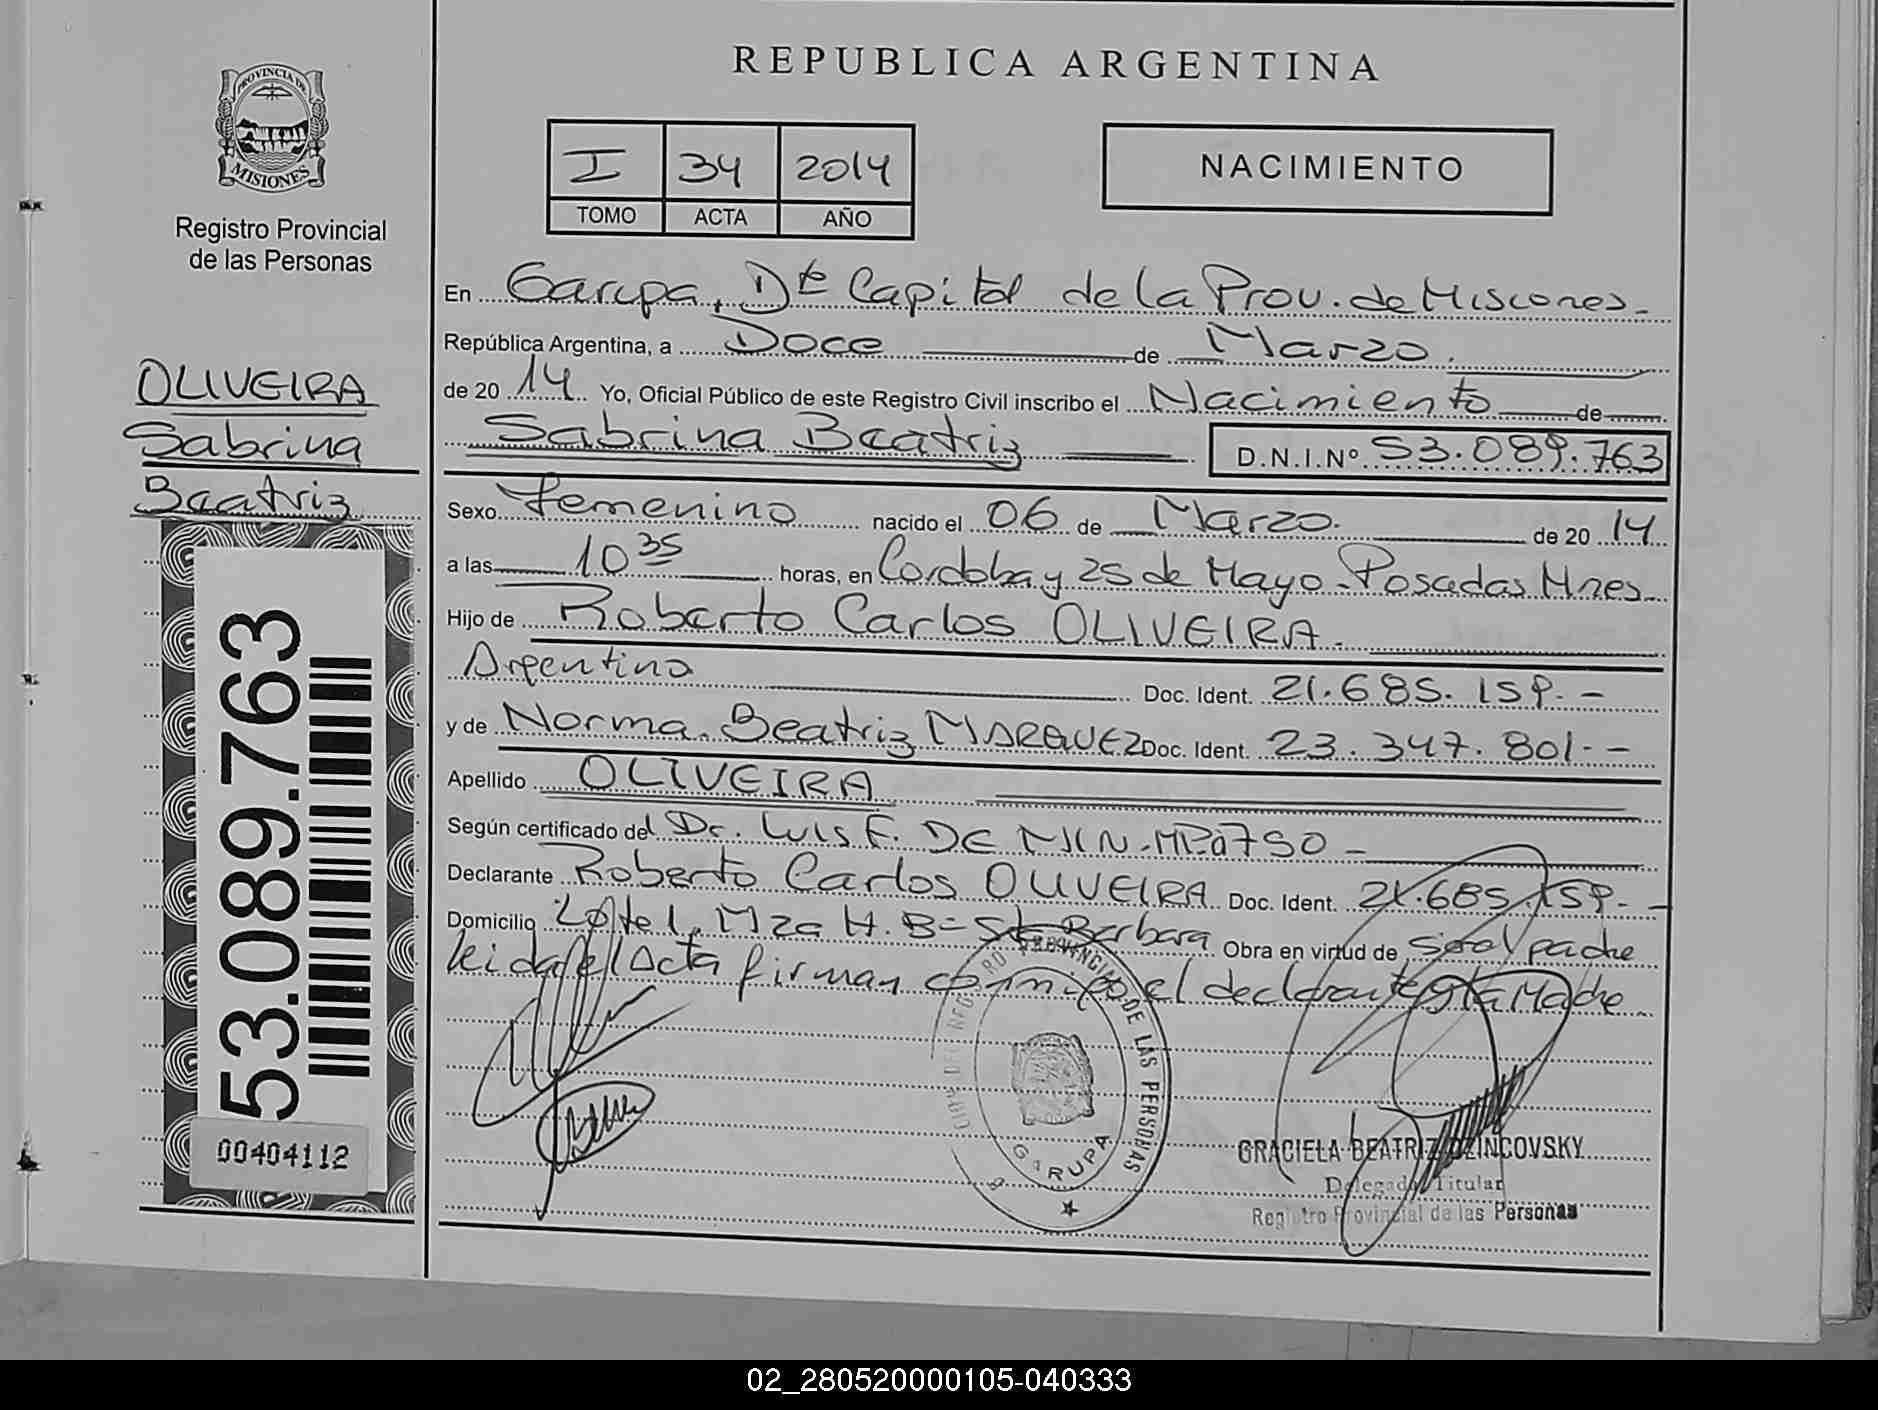 REPUBLICA ARGENTINA
PROVINCIA DE
MISIONES
Registro Provincial
de las Personas
I 34 2014
TOMO ACTA AÑO
NACIMIENTO
OLIVEIRA
Sabrina
Beatriz
53.089.763
00404112
En Garupa, Dte Capital de la Prov. de Misiones
República Argentina, a Doce de Marzo
de 20 14 Yo, Oficial Público de este Registro Civil inscribo el Nacimiento de
Sabrina Beatriz D.N.I.Nº 53.089.763
Sexo Femenino nacido el 06 de Marzo de 20 14
a las 10 35 horas, en Cordoba y 25 de Mayo - Posadas Mnes
Hijo de Roberto Carlos OLIVEIRA.
Argentino Doc. Ident. 21.685.159.-
y de Norma Beatriz MARQUEZ Doc. Ident. 23.347.801.-
Apellido OLIVEIRA
Según certificado del Dr. Luis F. DE
Declarante Roberto Carlos OLIVEIRA Doc. Ident. 21.685.159.-
Domicilio Lote 1, Mza H. Bº Sta Barbara Obra en virtud de padre
leida el Acta firman conmigo el declarante y la Madre
REGISTRO PROVINCIAL DE LAS PERSONAS
GARUPA
GRACIELA BEATRIZ DZINCOVSKY
Delegada Titular
Registro Provincial de las Personas
02_280520000105-040333